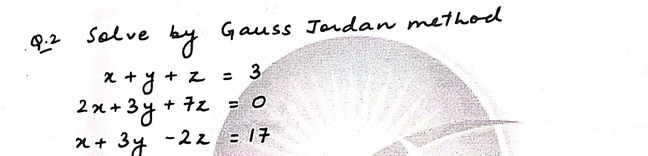 Q.2 Solve by Gauss Jordan method
x + y + z = 3
2x + 3y + 7z = 0
x + 3y - 2z = 17